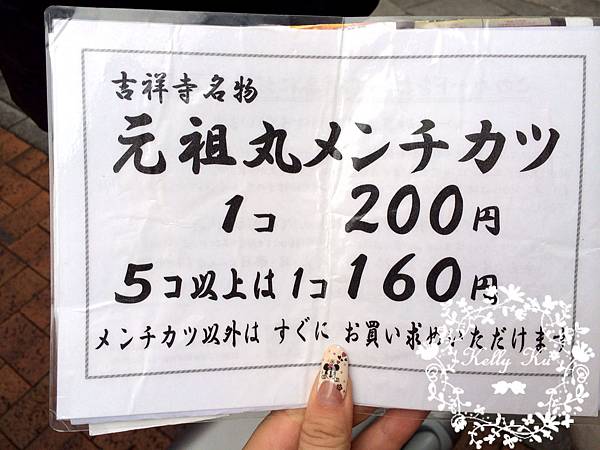 吉祥寺名物
元祖丸メンチカツ
1コ 200円
5コ以上は1コ160円
メンチカツ以外は すぐに お買い求めいただけます
Kelly Ku